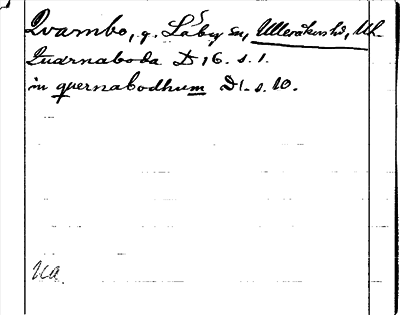 Qvambo, g. Låby sn, Ulleråkers hd, Upl.
Quarnaboda D 16. s. 1.
in quernabodhum D1. s. 10.
Ua.